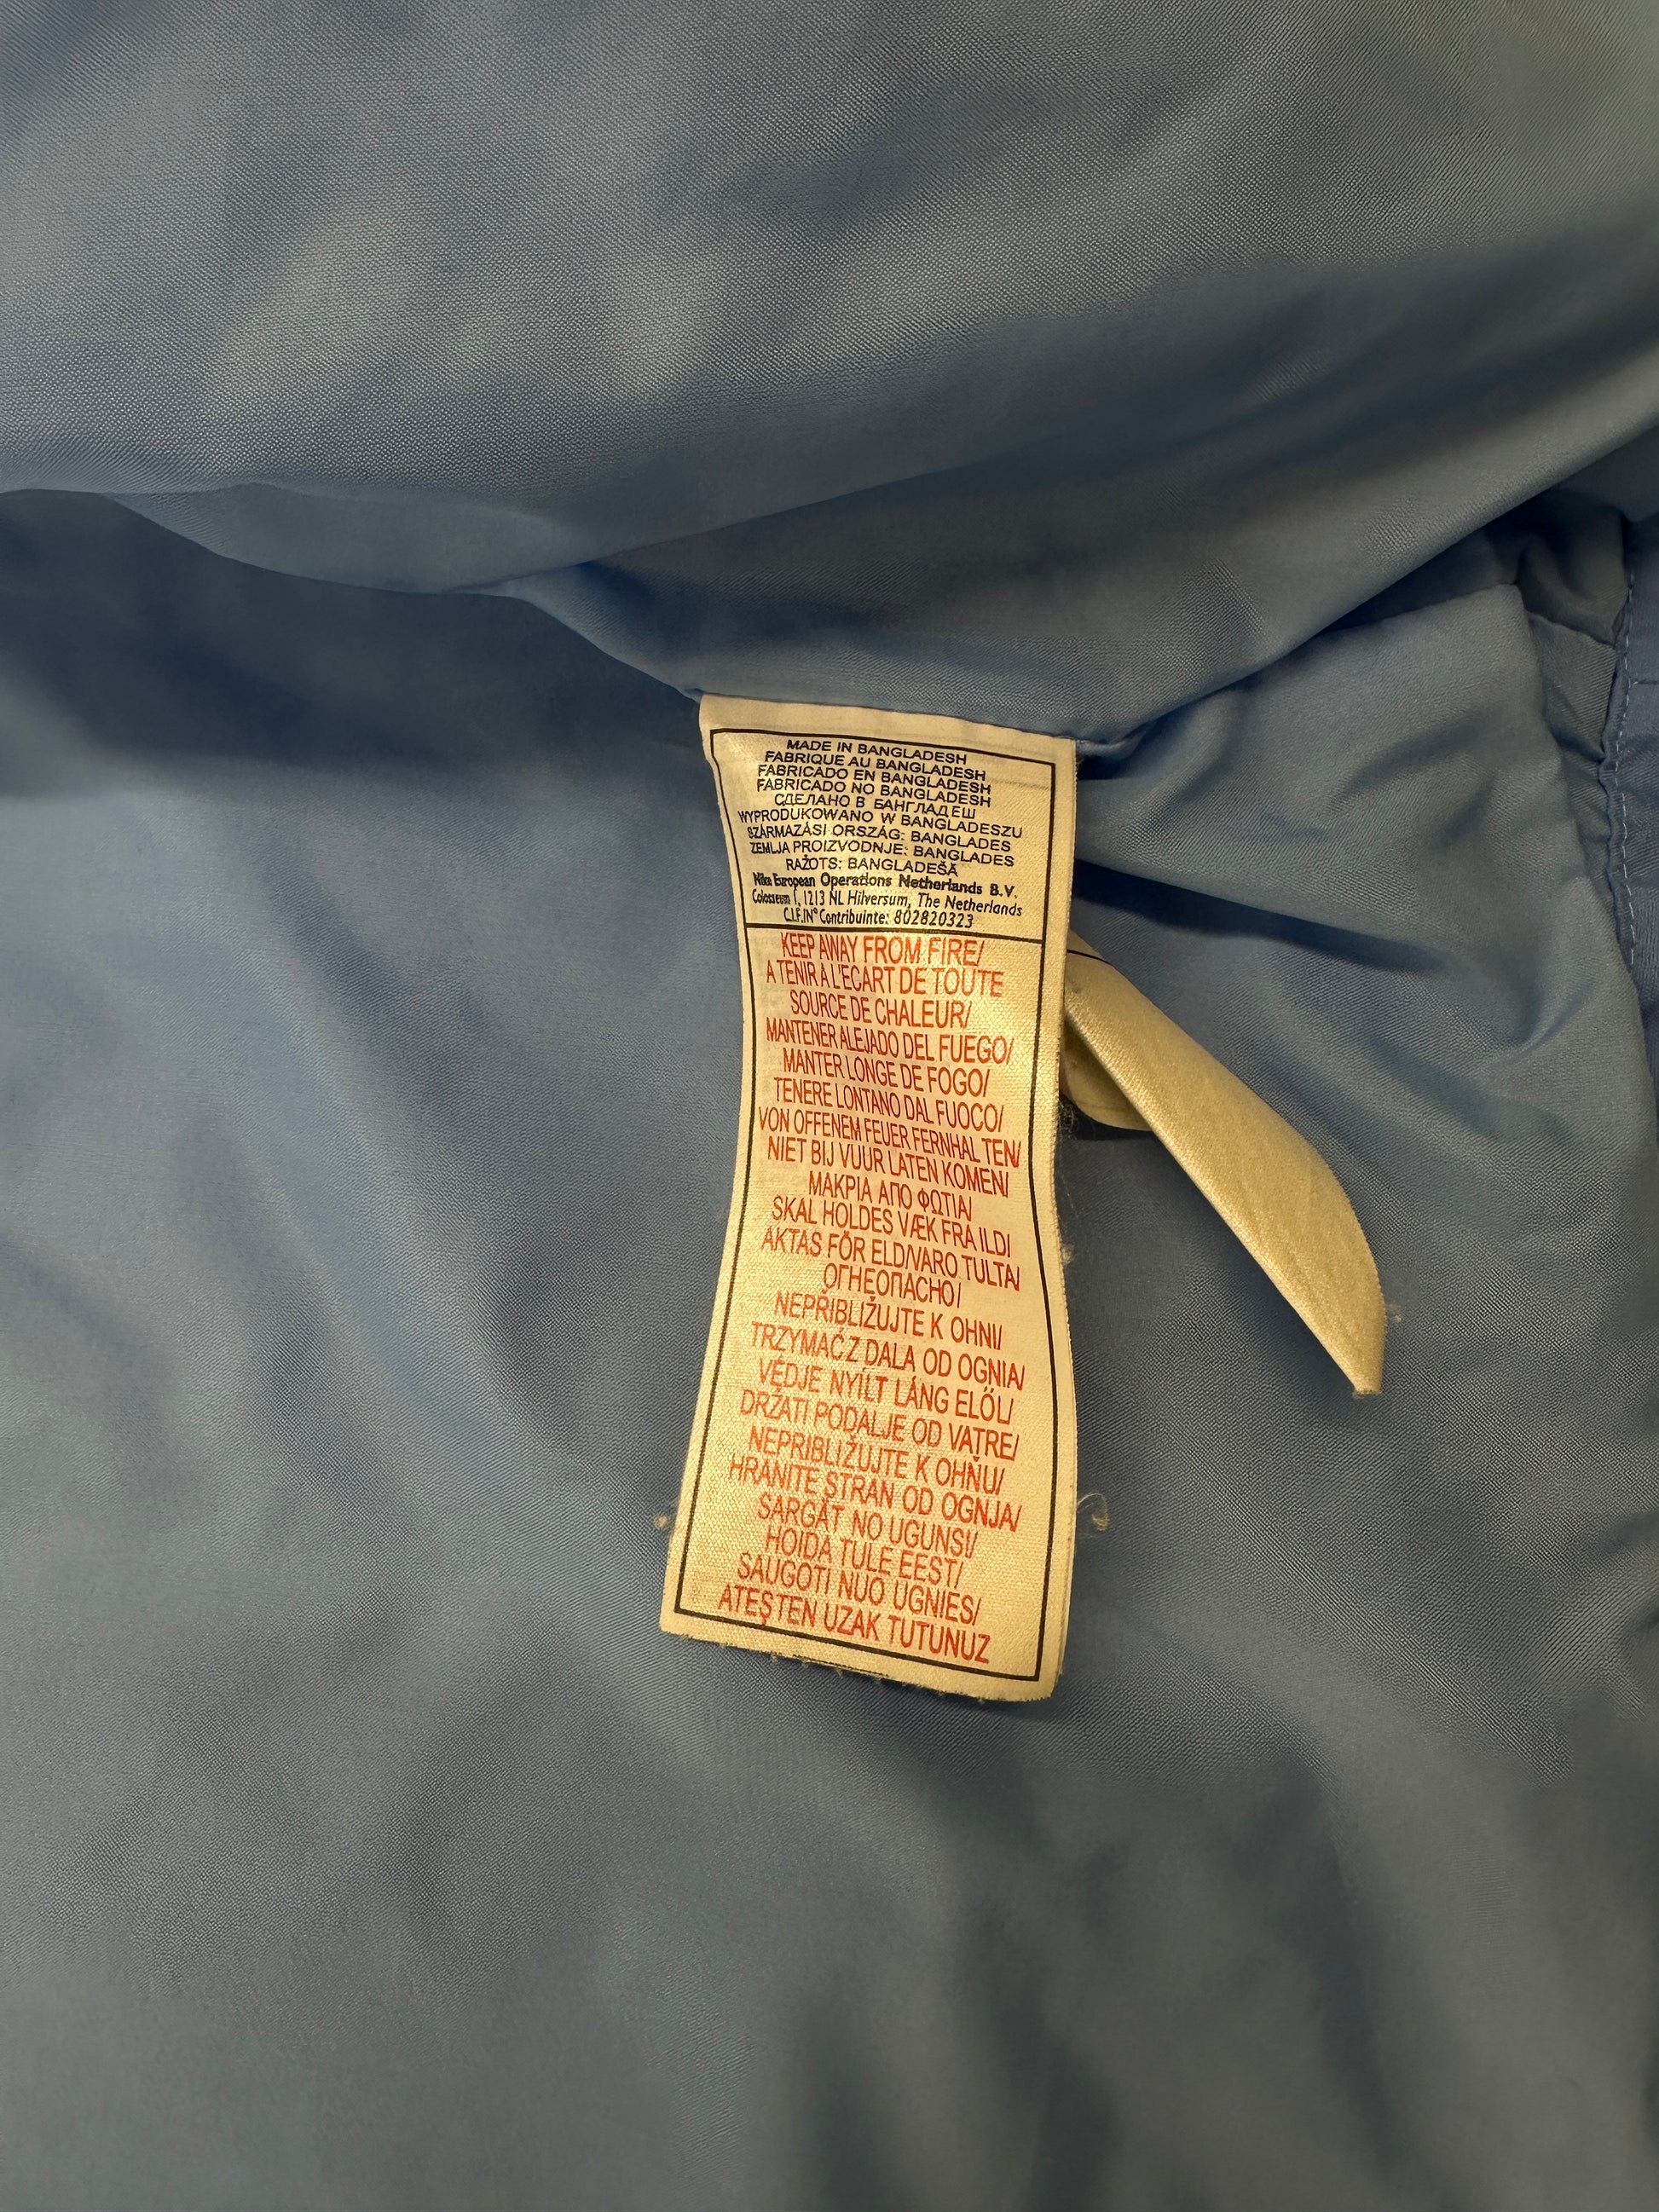 MADE IN BANGLADESH
FABRIQUE AU BANGLADESH
FABRICADO EN BANGLADESH
FABRICADO NO BANGLADESH
СДЕЛАНО В БАНГЛАДЕШ
WYPRODUKOWANO W BANGLADESZU
SZÁRMAZÁSI ORSZÁG: BANGLADES
ZEMLJA PROIZVODNJE: BANGLADES
RAŽOTS: BANGLADEŠĀ
Nike European Operations Netherlands B.V.
Colosseum 1, 1213 NL Hilversum, The Netherlands
C.I.F./N° Contribuinte: 802820323
KEEP AWAY FROM FIRE/
A TENIR À L'ECART DE TOUTE
SOURCE DE CHALEUR/
MANTENER ALEJADO DEL FUEGO/
MANTER LONGE DE FOGO/
TENERE LONTANO DAL FUOCO/
VON OFFENEM FEUER FERNHAL TEN/
NIET BIJ VUUR LATEN KOMEN/
ΜΑΚΡΙΑ ΑΠΟ ΦΩΤΙΑ/
SKAL HOLDES VÆK FRA ILD/
AKTAS FÖR ELD/VARO TULTA/
ОГНЕОПАСНО/
NEPŘIBLIŽUJTE K OHNI/
TRZYMAĆ Z DALA OD OGNIA/
VÉDJE NYÍLT LÁNG ELŐL/
DRŽATI PODALJE OD VATRE/
NEPRIBLIŽUJTE K OHŇU/
HRANITE STRAN OD OGNJA/
SARGĀT NO UGUNS/
HOIDA TULE EEST/
SAUGOTI NUO UGNIES/
ATEŞTEN UZAK TUTUNUZ